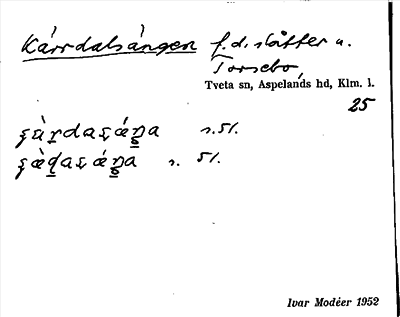 Kärrdalsängen f.d. slåtter u.
Torsebo,
Tveta sn, Aspelands hd, Klm. l.
25
s. 51.
s. 51.
Ivar Modéer 1952